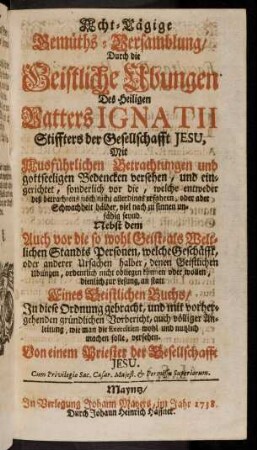 Acht-Tägige
Gemüths-Versamblung/
Durch die
Geistliche Ubungen
Des Heiligen
Vatters IGNATII
Stiffters der Gesellschafft JESU,
Mit
Ausführlichen Betrachtungen und
gottseeligen Bedencken versehen, und ein-
gerichtet, sonderlich vor die, welche entweder
des betrachtens noch nicht allerdings erfahren, oder aber
Schwachheit halber, viel nach zu sinnen un-
fähig seynd.
Nebst dem
Auch vor die so wohl Geist- als Welt-
lichen Standts Personen, welche Geschäfft,
oder anderer Ursachen halber, denen Geistlichen
Ubungen, ordentlich nicht obliegen können oder wollen,
dienlich zur Lesung, an statt
Eines Geistlichen Buchs,
In diese Ordnung gebracht, und mit vorher-
gehenden gründlichen Vorbericht, auch völliger An-
leitung, wie man die Exercitien wohl und nutzlich
machen solle, versehen.
Von einem Priester der Gesellschafft
JESU.
Cum Privilegio Sac. Cæsar. Majest. & Permissu Superiorum.
Mayntz/
In Verlegung Johann Mayers, im Jahr 1738.
Durch Johann Heinrich Häffner.